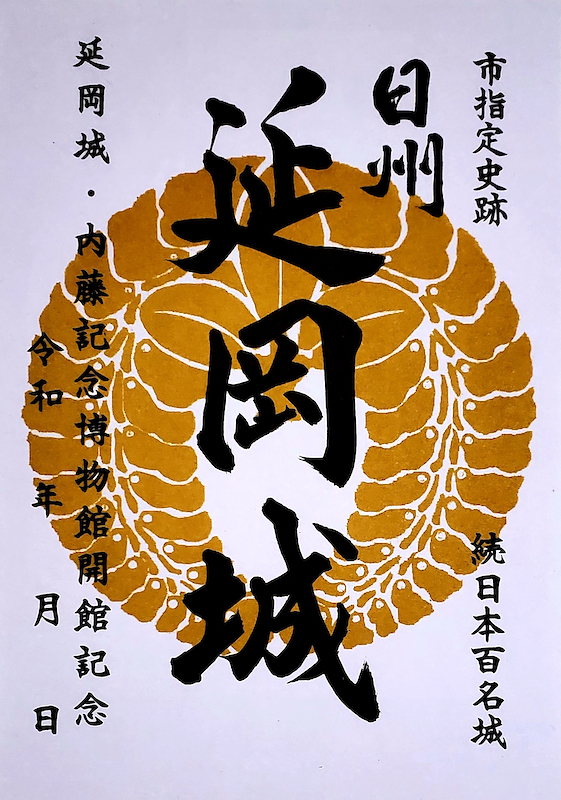 市指定史跡
続日本百名城
日州
延岡城
延岡城・内藤記念博物館開館記念
令和 年 月 日